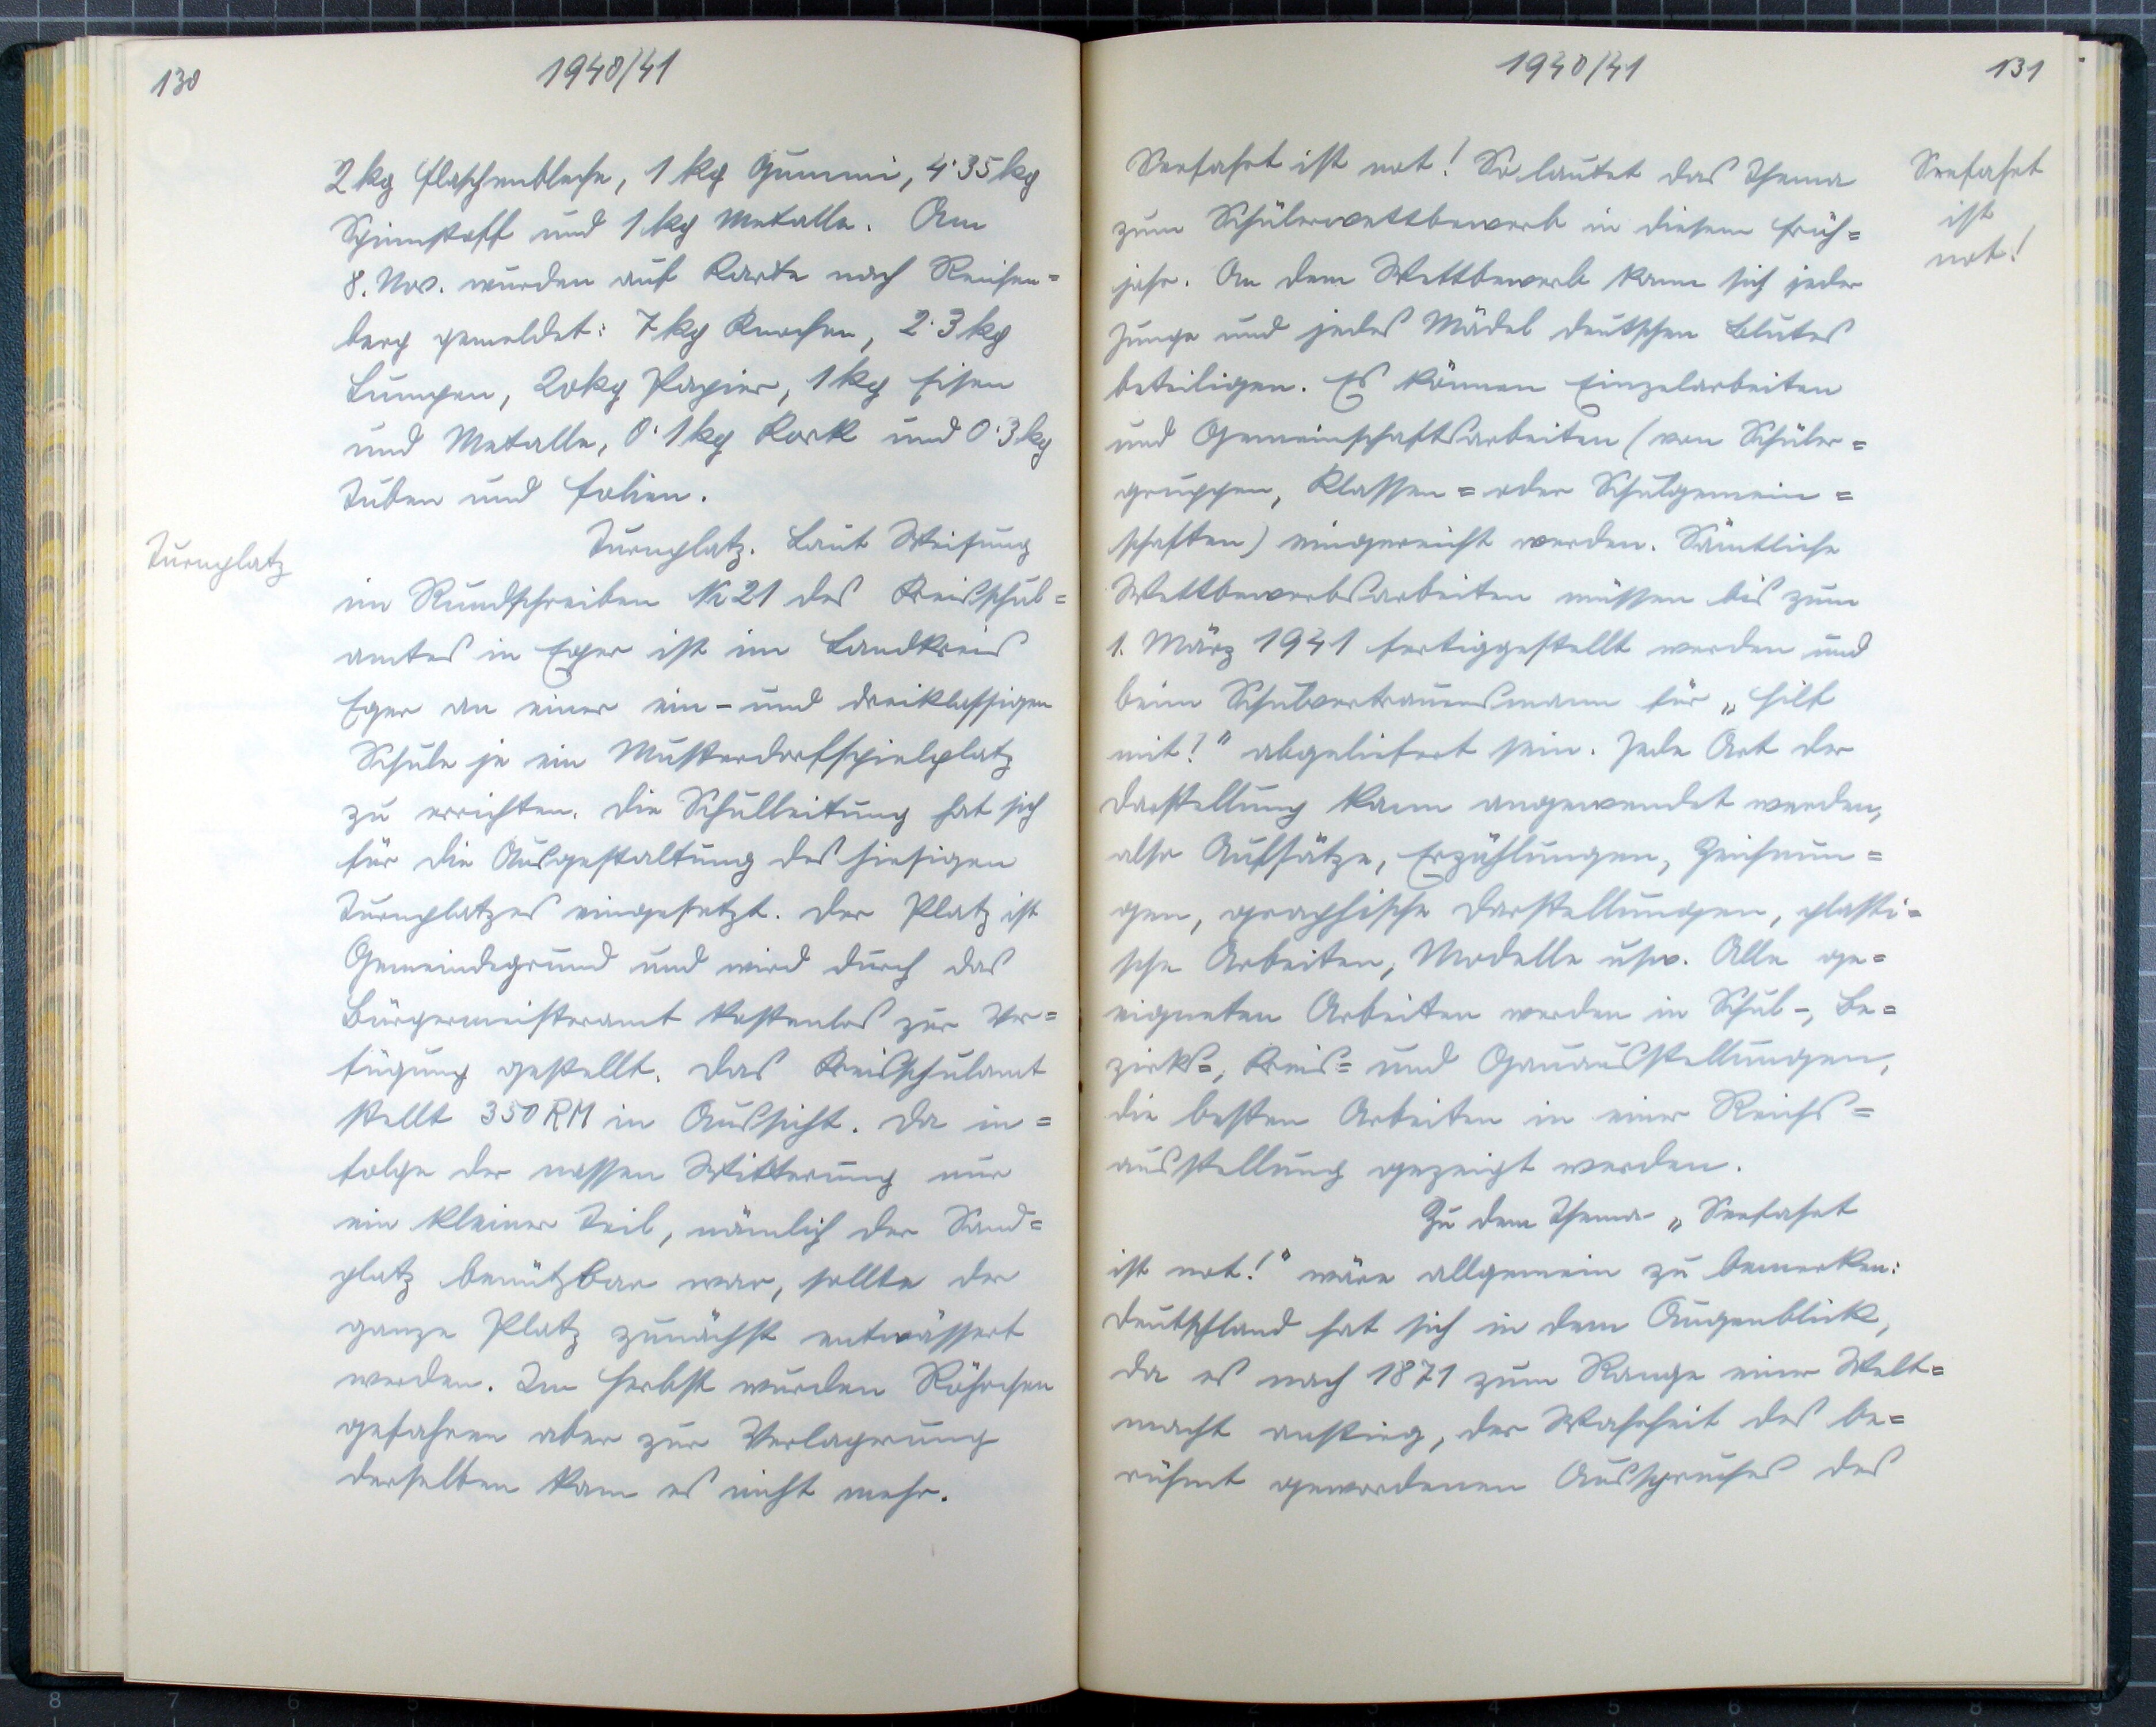 130
1940/41
2 kg Flaschenbleche, 1 kg Gummi, 4·35 kg
Spinnstoff und 1 kg Metalle. Am
8. Nov. wurden auf Karte nach Reichen=
berg gemeldet: 7 kg Knochen, 2·3 kg
Lumpen, 20kg Papier, 1 kg Eisen
und Metalle, 0·1 kg Kork und 0·3 kg
Tuben und Folien.
Turnplatz
Turnplatz. Laut Weisung
im Rundschreiben № 21 des Kreisschul=
amtes in Eger ist im Landkreis
Eger an einer ein- und dreiklassigen
Schule je ein Musterdorfspielplatz
zu errichten. Die Schulleitung hat sich
für die Ausgestaltung des hiesigen
Turnplatzes eingesetzt. Der Platz ist
Gemeindegrund und wird durch das
Bürgermeisteramt kostenlos zur Ver=
fügung gestellt. Das Kreisschulamt
stellt 350 RM in Aussicht. Da in=
folge der nassen Witterung nur
ein kleiner Teil, nämlich der Sand=
platz benützbar war, sollte der
ganze Platz zunächst entwässert
werden. Im Herbst wurden Röhrchen
gefahren aber zur Verlagerung
derselben kam es nicht mehr.
1940/41
131
Seefahrt
ist
not!
Seefahrt ist not! So lautet das Thema
zum Schülerwettbewerb in diesem Früh=
jahr. An dem Wettbewerb kann sich jeder
Junge und jedes Mädel deutschen Blutes
beteiligen. Es können Einzelarbeiten
und Gemeinschaftsarbeiten (von Schüler=
gruppen, Klassen= oder Schulgemein=
schaften) eingereicht werden. Sämtliche
Wettbewerbsarbeiten müssen bis zum
1. März 1941 fertiggestellt werden und
beim Schulvertrauensmann für „Hilf
mit!" abgeliefert sein. Jede Art der
Darstellung kann angewendet werden,
also Aufsätze, Erzählungen, Zeichnun=
gen, graphische Darstellungen, plasti=
sche Arbeiten, Modelle usw. Alle ge=
eigneten Arbeiten werden in Schul-, Be=
zirks=, Kreis= und Gauausstellungen,
die besten Arbeiten in einer Reichs=
ausstellung gezeigt werden.
Zu dem Thema „Seefahrt
ist not!" wäre allgemein zu bemerken:
Deutschland hat sich in dem Augenblick,
da es nach 1871 zum Range einer Welt=
macht anstieg, der Wahrheit des be=
rühmt gewordenen Ausspruches des